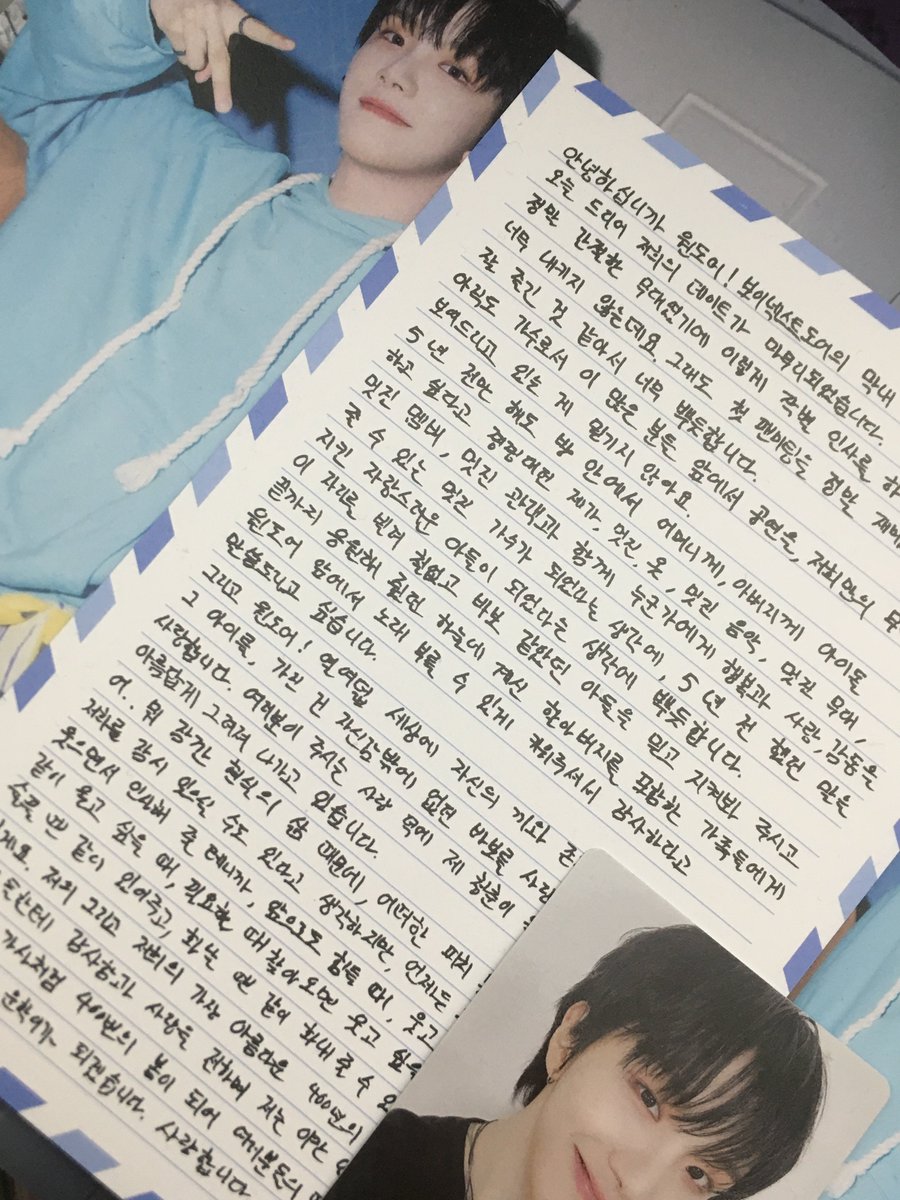 안녕하십니까 원도어! 보이넥스트도어의 막내
오늘 드리어 저희의 데이트가 마무리되었습니다.
정말 간절한 무대였기에 이렇게 작별 인사를 하
너무 내키지 않는데요. 그래도 첫 팬미팅을 정말 재미
잘 즐긴 것 같아서 너무 뿌듯합니다.
아직도 가수로서 이 많은 분들 앞에서 공연을, 저희만의 무
보여드리고 있는 게 믿기지 않아요.
5년 전만 해도 방 안에서 어머니께, 아버지께 아이돌
하고 싶다고 경퍼대던 제가, 멋진 옷, 멋진 음악, 멋진 무대,
멋진 멤버, 멋진 관객과 함께 누군가에게 행복과 사랑, 감동을
줄 수 있는 멋진 가수가 되었다는 생각에, 5년 전 했던 말을
지킨 자랑스러운 아들이 되었다는 생각에 뿌듯합니다.
이 자리를 빌려 철없고 바보 같았던 아들을 믿고 지켜봐 주시고
끝까지 응원해 줬던 하늘에 계신 할아버지를 포함한 가족들에게
원도어 앞에서 노래 부를 수 있게 키워주셔서 감사하다고
말씀드리고 싶습니다.
그리고 원도어! 연여덟 세상에 자신의 끼와 존
그 아이를, 가진 건 자신감밖에 없던 바보를 사랑
사랑합니다. 여러분이 주시는 사랑 덕에 제 청춘이
아름답게 그려져 나가고 있습니다.
어.. 뭐 장간 현식의 삶 때문에, 어떠한 피치
저희를 잠시 잊으실 수도 있다고 생각하지만, 언제든
웃으면서 인사해 줄 테니까, 앞으로도 힘들 때, 웃고
같이 울고 싶을 때, 필요할 때 찾아오면 웃고 싶을
슬플 땐 같이 있어주고, 화날 땐 같이 화내 줄 수
게요. 저의 그리고 저희의 가장 아름다운 400년의
들한테 감사함과 사랑을 전하며 저는 이만
가사처럼 400번의 봄이 되어 여러분들의
운학이가 되겠습니다. 사랑합니다